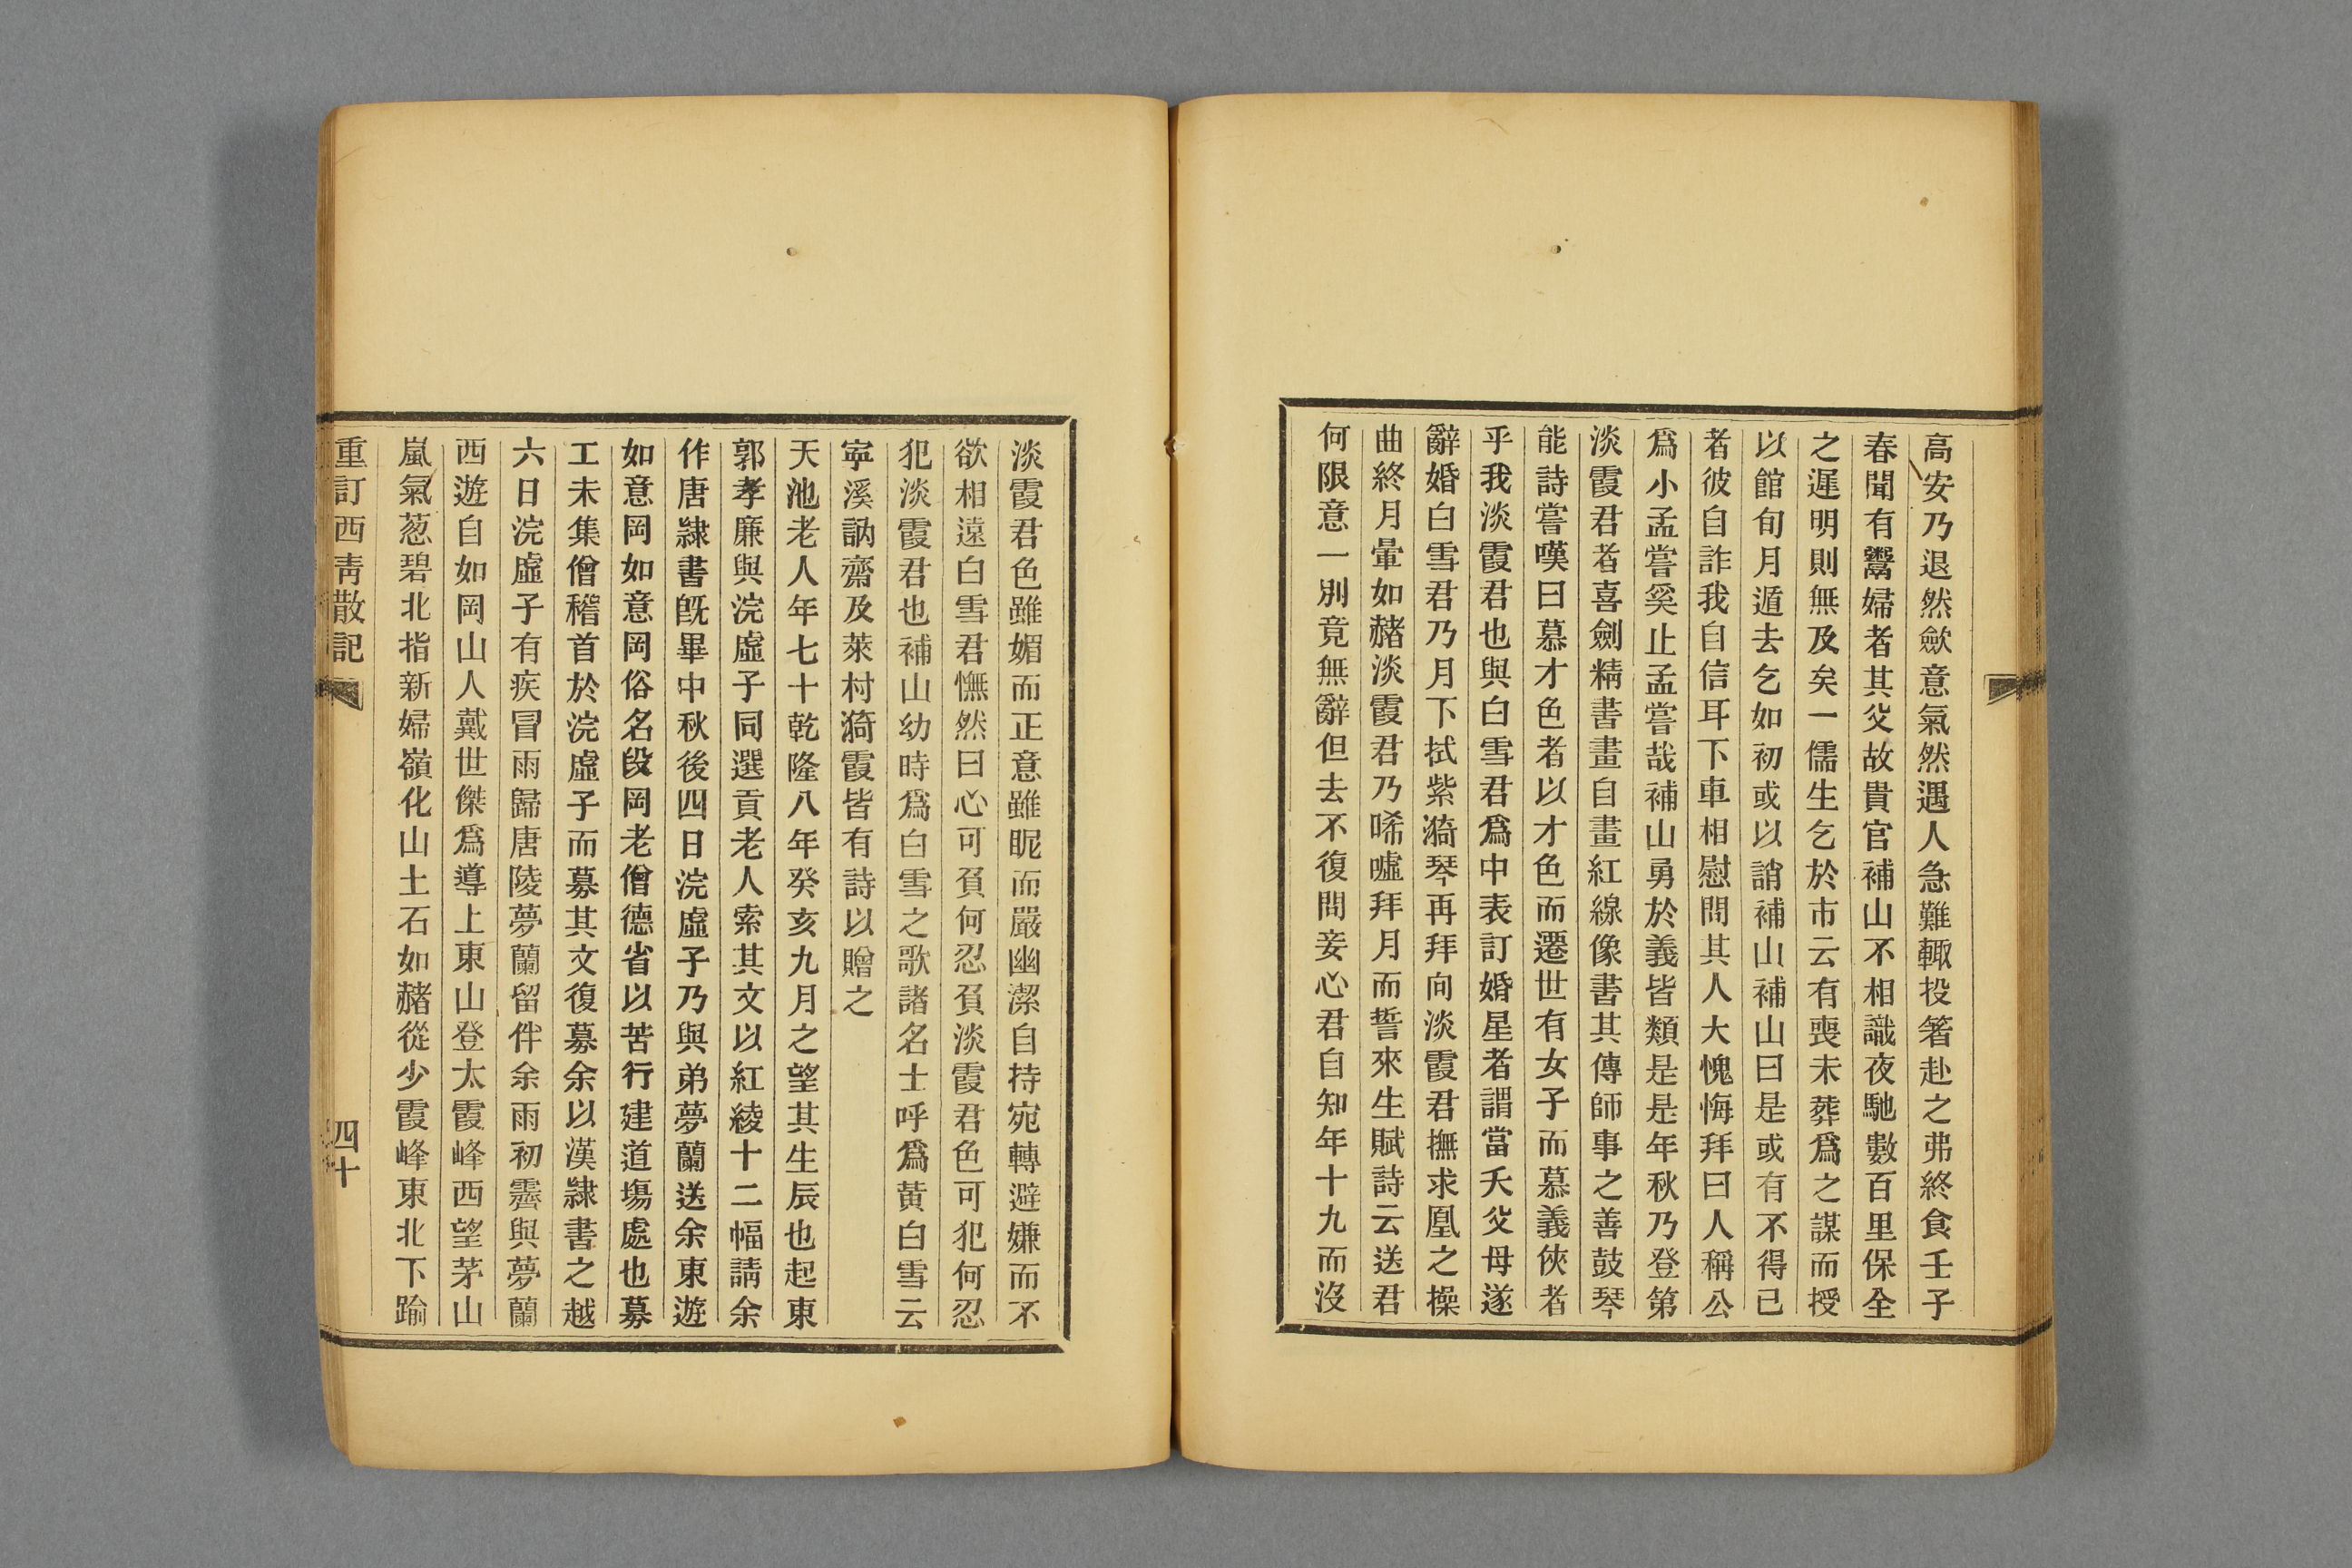 高安乃退然歛意氣然遇人急難輙投箸赴之弗終食壬子
春聞有鬻婦者其父故貴官補山不相識夜馳數百里保全
之遲明則無及矣一儒生乞於市云有喪未葬爲之謀而授
以館旬月遁去乞如初或以誚補山補山曰是或有不得已
者彼自詐我自信耳下車相慰問其人大愧悔拜曰人稱公
爲小孟嘗奚止孟嘗哉補山勇於義皆類是是年秋乃登第
淡霞君者喜劍精書畫自畫紅線像書其傳師事之善鼓琴
能詩嘗嘆曰慕才色者以才色而遷世有女子而慕義俠者
乎我淡霞君也與白雪君爲中表訂婚星者謂當夭父母遂
辭婚白雪君乃月下拭紫漪琴再拜向淡霞君撫求凰之操
曲終月暈如赭淡霞君乃唏噓拜月而誓來生賦詩云送君
何限意一別竟無辭但去不復問妾心君自知年十九而沒
淡霞君色雖媚而正意雖昵而嚴幽潔自持宛轉避嫌而不
欲相遠白雪君憮然曰心可負何忍負淡霞君色可犯何忍
犯淡霞君也補山幼時爲白雪之歌諸名士呼爲黃白雪云
寧溪訥齋及萊村漪霞皆有詩以贈之
天池老人年七十乾隆八年癸亥九月之望其生辰也起東
郭孝廉與浣虛子同選貢老人索其文以紅綾十二幅請余
作唐隷書旣畢中秋後四日浣虛子乃與弟夢蘭送余東遊
如意岡如意岡俗名段岡老僧德省以苦行建道塲處也募
工未集僧稽首於浣虛子而募其文復募余以漢隷書之越
六日浣虛子有疾冒雨歸唐陵夢蘭留伴余雨初霽與夢蘭
西遊自如岡山人戴世傑爲導上東山登太霞峰西望茅山
嵐氣葱碧北指新婦嶺化山土石如赭從少霞峰東北下踰
重訂西青散記
四十